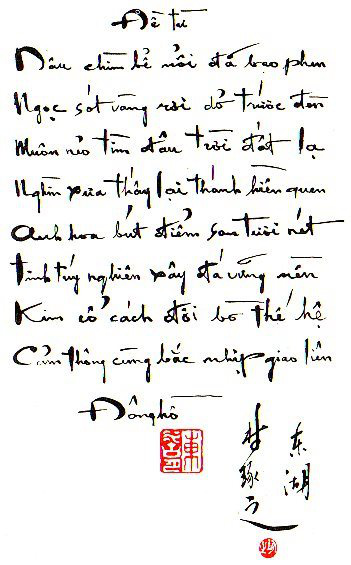 Đề từ
Dâu chìm bể nổi đã bao phen
Ngọc sót vàng rơi dở trước đèn
Muôn nẻo tìm đâu trời đất lạ
Nghìn xưa thấy lại thánh hiền quen
Anh hoa bút điểm son tươi nét
Tinh túy nghiên xây đá vững nền
Kim cổ cách đôi bờ thế hệ
Cảm thông cùng bắc nhịp giao liên
Đông Hồ
东湖
林琢之